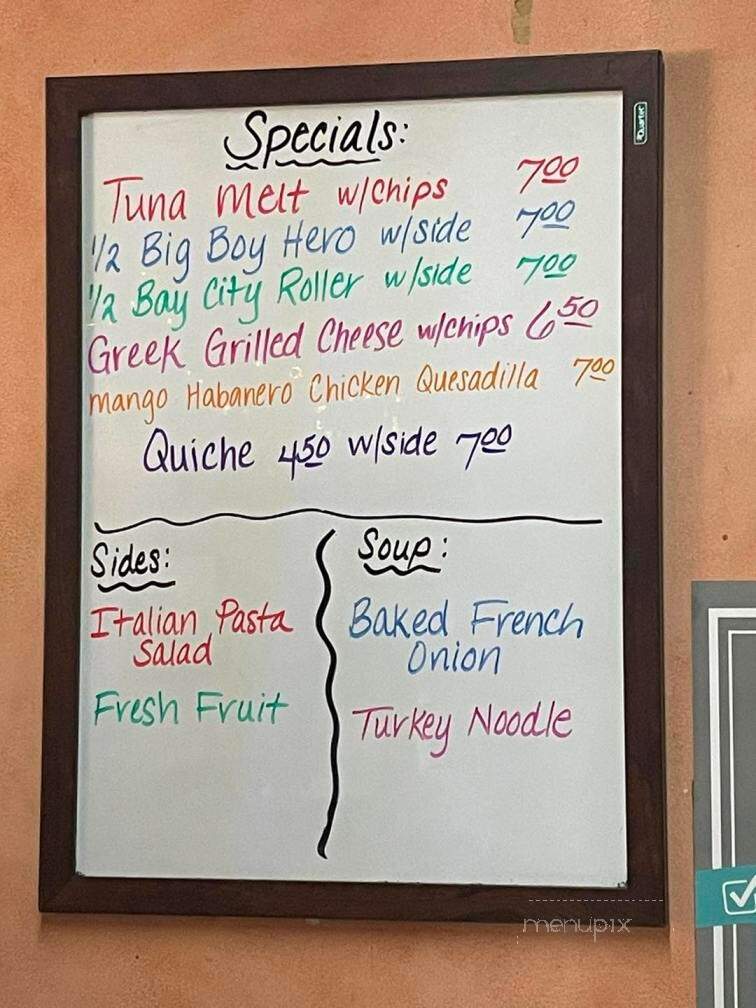 Specials:
Tuna Melt w/chips 7.00
1/2 Big Boy Hero w/side 7.00
1/2 Bay City Roller w/side 7.00
Greek Grilled Cheese w/chips 6.50
mango Habanero Chicken Quesadilla 7.00
Quiche 4.50 w/side 7.00
Sides:
Italian Pasta
Salad
Fresh Fruit
Soup:
Baked French
Onion
Turkey Noodle
Quartet
menupix